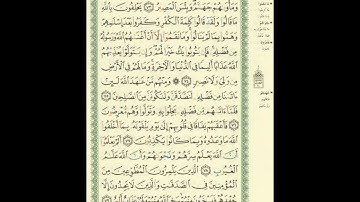 وَمَأْوَىٰهُمْ جَهَنَّمُ وَبِئْسَ ٱلْمَصِيرُ ٧٣ يَحْلِفُونَ بِٱللَّهِ
مَا قَالُوا۟ وَلَقَدْ قَالُوا۟ كَلِمَةَ ٱلْكُفْرِ وَكَفَرُوا۟ بَعْدَ إِسْلَٰمِهِمْ
وَهَمُّوا۟ بِمَا لَمْ يَنَالُوا۟ وَمَا نَقَمُوٓا۟ إِلَّآ أَنْ أَغْنَىٰهُمُ ٱللَّهُ وَرَسُولُهُۥ
مِن فَضْلِهِۦ فَإِن يَتُوبُوا۟ يَكُ خَيْرًا لَّهُمْ وَإِن يَتَوَلَّوْا۟ يُعَذِّبْهُمُ
ٱللَّهُ عَذَابًا أَلِيمًا فِى ٱلدُّنْيَا وَٱلْـَٔاخِرَةِ وَمَا لَهُمْ فِى ٱلْأَرْضِ
مِن وَلِىٍّ وَلَا نَصِيرٍ ٧٤ وَمِنْهُم مَّنْ عَٰهَدَ ٱللَّهَ لَئِنْ
ءَاتَىٰنَا مِن فَضْلِهِۦ لَنَصَّدَّقَنَّ وَلَنَكُونَنَّ مِنَ ٱلصَّٰلِحِينَ ٧٥
فَلَمَّآ ءَاتَىٰهُم مِّن فَضْلِهِۦ بَخِلُوا۟ بِهِۦ وَتَوَلَّوا۟ وَّهُم مُّعْرِضُونَ
٧٦ فَأَعْقَبَهُمْ نِفَاقًا فِى قُلُوبِهِمْ إِلَىٰ يَوْمِ يَلْقَوْنَهُۥ بِمَآ أَخْلَفُوا۟
ٱللَّهَ مَا وَعَدُوهُ وَبِمَا كَانُوا۟ يَكْذِبُونَ ٧٧ أَلَمْ يَعْلَمُوٓا۟
أَنَّ ٱللَّهَ يَعْلَمُ سِرَّهُمْ وَنَجْوَىٰهُمْ وَأَنَّ ٱللَّهَ عَلَّٰمُ
ٱلْغُيُوبِ ٧٨ ٱلَّذِينَ يَلْمِزُونَ ٱلْمُطَّوِّعِينَ مِنَ
ٱلْمُؤْمِنِينَ فِى ٱلصَّدَقَٰتِ وَٱلَّذِينَ لَا يَجِدُونَ إِلَّا